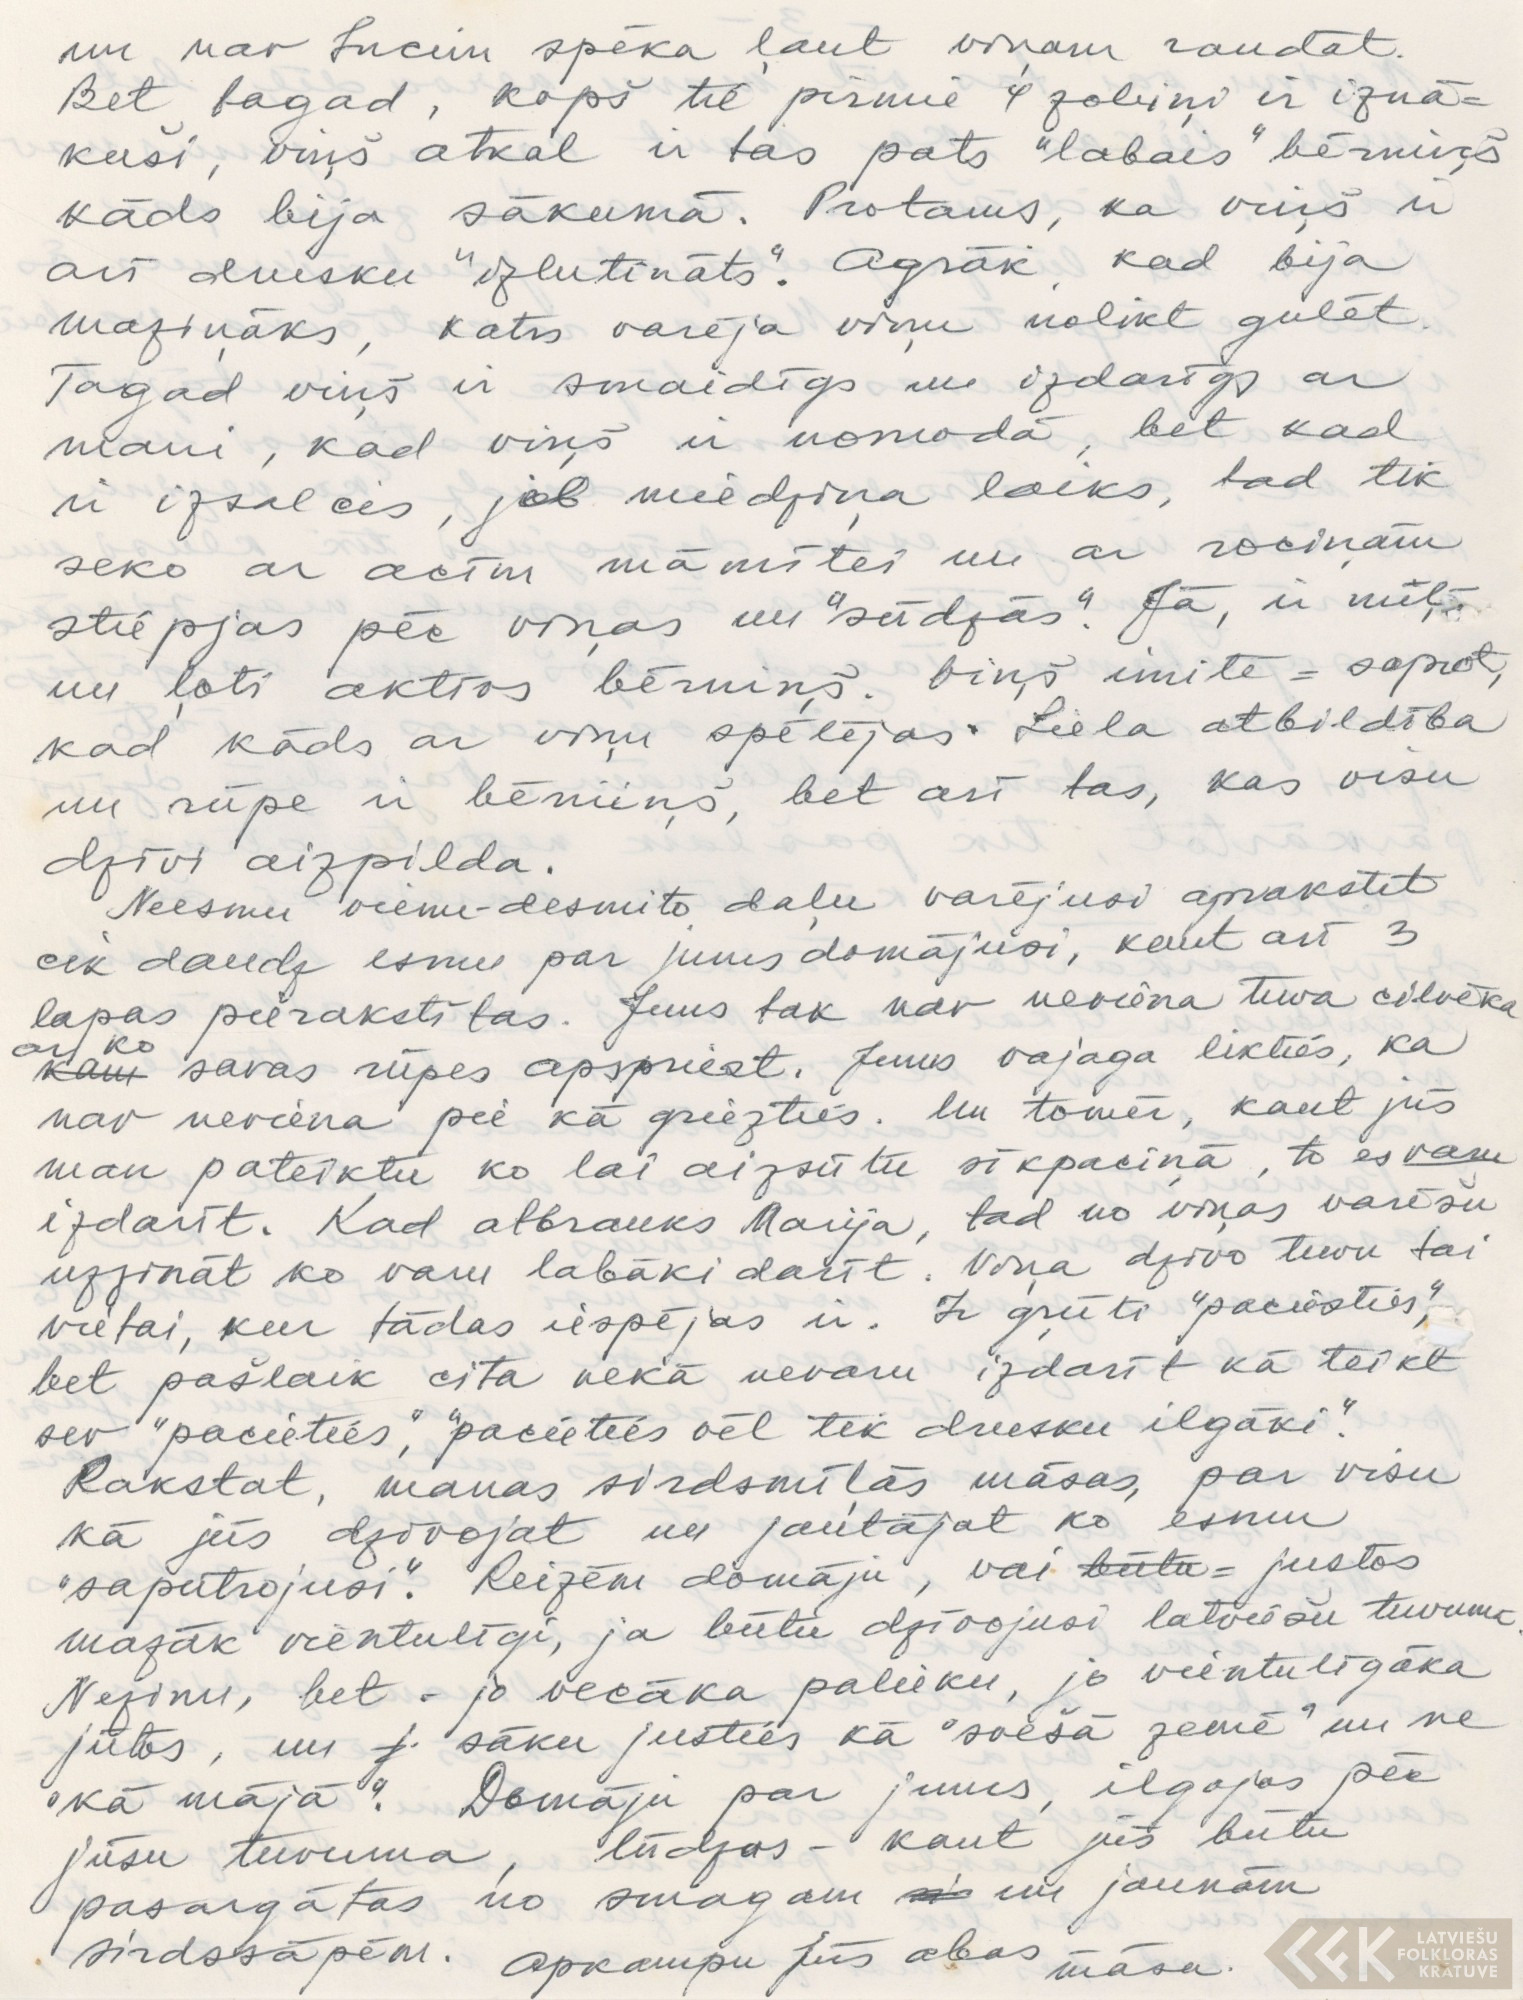 un nav Lucim spēka ļaut viņam raudāt.
Bet tagad, kopš tie pirmie 4 zobiņi ir iznā=
kuši, viņš atkal ir tas pats "labais" bērniņš
kāds bija sākumā. Protams, ka viņš ir
arī drusku "izlutināts". Agrāk, kad bija
maziņāks, katrs varēja viņu nolikt gulēt.
Tagad viņš ir smaidīgs un izdarīgs ar
mani, kad viņš ir nomodā, bet kad
ir izsalcis, jeb miedziņa laiks, tad tik
seko ar acīm māmītei un ar rociņām
stiepjas pēc viņas un "sūdzās". Jā, ir mīļš
un ļoti aktīvs bērniņš. Viņš imitē = saprot,
kad kāds ar viņu spēlējas. Liela atbildība
un rūpe ir bērniņš, bet arī tas, kas visu
dzīvi aizpilda.
Neesmu vienu-desmito daļu varējusi aprakstīt
cik daudz esmu par jums domājusi, kaut arī 3
lapas pierakstītas. Jums tak nav neviena tuva cilvēka
ar ko
kam savas rūpes apspriest. Jums vajaga likties, ka
nav neviena pie kā griezties. Un tomēr, kaut jūs
man pateiktu ko lai aizsūtu sīkpaciņā, to es varu
izdarīt. Kad atbrauks Marija, tad no viņas varēšu
uzzināt ko varu labāki darīt. Viņa dzīvo tuvu tai
vietai, kur tādas iespējas ir. Ir grūti "paciesties",
bet pašlaik cita nekā nevaru izdarīt kā teikt
sev "pacieties", "pacieties vēl tik drusku ilgāki".
Rakstat, manas sirdsmīļās māsas, par visu
kā jūs dzīvojat un jautājat ko esmu
"saputrojusi". Reizēm domāju, vai būtu = justos
mazāk vientulīgi, ja būtu dzīvojusi latviešu tuvumā.
Nezinu, bet - jo vecāka palieku, jo vientulīgāka
jūtos, un j. sāku justies kā "svešā zemē" un ne
"kā mājā". Domāju par jums, ilgojos pēc
jūsu tuvuma, lūdzos - kaut jūs būtu
pasargātas no smagam un jaunām
sirdssāpēm. Apkampu Jūs abas māsa.
LATVIEŠU
FOLKLORAS
KRĀTUVE